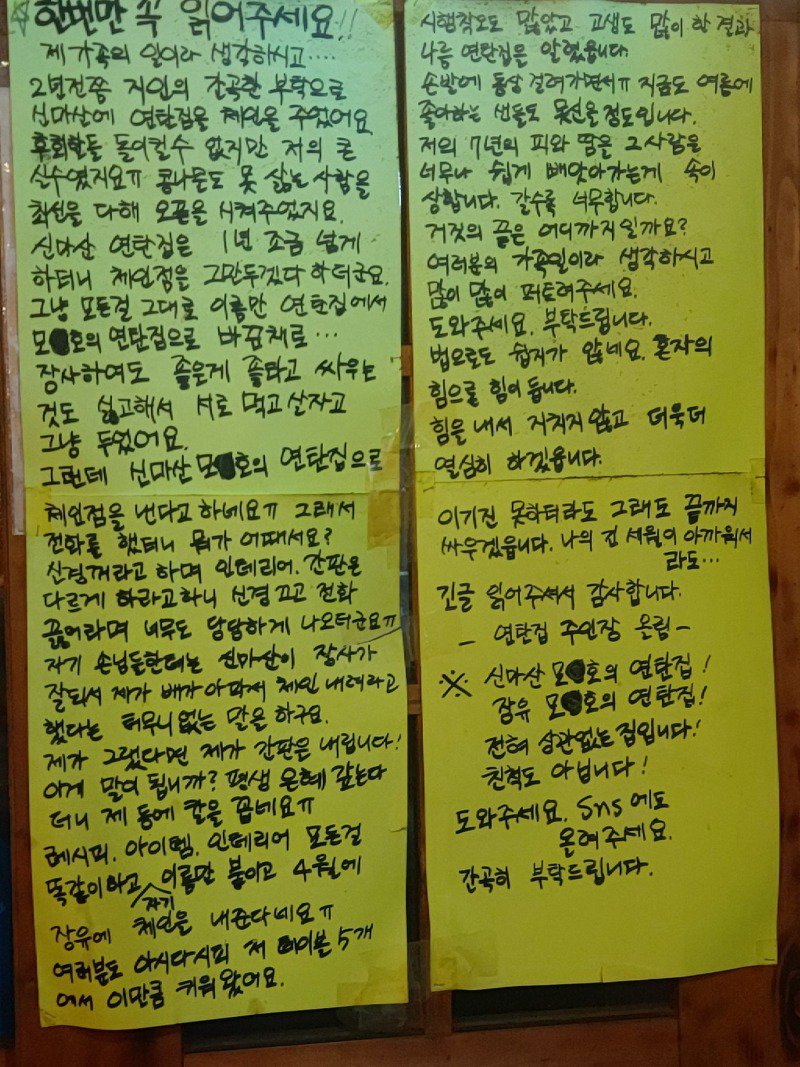 한번만 꼭 읽어주세요!!
제 가족의 일이라 생각하시고....
2년전쯤 지인의 간곡한 부탁으로
신마산에 연탄집을 체인을 주었어요
후회한들 돌이킬수 없지만 저의 큰
실수였지요ㅠ 콩나물도 못 삶는 사람을
최선을 다해 오픈을 시켜주었지요.
신마산 연탄집은 1년 조금 넘게
하더니 체인점을 그만두겠다 하더군요.
그냥 모든걸 그대로 이름만 연탄집에서
모 호의 연탄집으로 바꿈채로...
장사하여도 좋은게 좋타고 싸우는
것도 싫고해서 서로 먹고 살자고
그냥 두었어요.
그런데 신마산 모 호의 연탄집으로
체인점을 낸다고 하네요ㅠ 그래서
전화를 했더니 뭐가 어때서요?
신경꺼라고 하며 인테리어. 간판은
다르게 하라고하니 신경끄고 전화
끊어라며 너무도 당당하게 나오더군요ㅠ
자기 손님들한테는 신마산이 장사가
잘되서 제가 배가아파서 체인 내려라고
했다는 터무니없는 말은 하구요.
제가 그랬다면 제가 간판은 내립니다!
이게 말이 됩니까? 평생 은혜 갚는다
더니 제 등에 칼을 꼽네요ㅠ
레시피. 아이템. 인테리어 모든걸
똑같이하고 자기 이름만 붙이고 4월에
장유에 체인을 내준다네요ㅠ
여러분도 아시다시피 저 테이블 5개
에서 이만큼 키워왔어요.
시행착오도 많았고 고생도 많이 한 결과
나름 연탄집을 알렸읍니다.
손발에 동상 걸려가면서ㅠ 지금도 여름에
좋아하는 샌들도 못신을 정도입니다.
저의 7년의 피와 땀을 그사람은
너무나 쉽게 빼앗아가는게 속이
상합니다. 갈수록 너무합니다.
거짓의 끝은 어디까지일까요?
여러분의 가족일이라 생각하시고
많이 많이 퍼트려주세요.
도와주세요. 부탁드립니다.
법으로도 쉽지가 않네요. 혼자의
힘으로 힘이 듭니다.
힘을 내서 지치지 않고 더욱더
열심히 하겠읍니다.
이기진 못하더라도 그래도 끝까지
싸우겠읍니다. 나의 긴 세월이 아까워서
라도...
긴글 읽어주셔서 감사합니다.
- 연탄집 주인장 올림 -
※ 신마산 모 호의 연탄집!
장유 모 호의 연탄집!
전혀 상관없는 집입니다!
친척도 아닙니다!
도와주세요. sns에도
올려주세요.
간곡히 부탁드립니다.